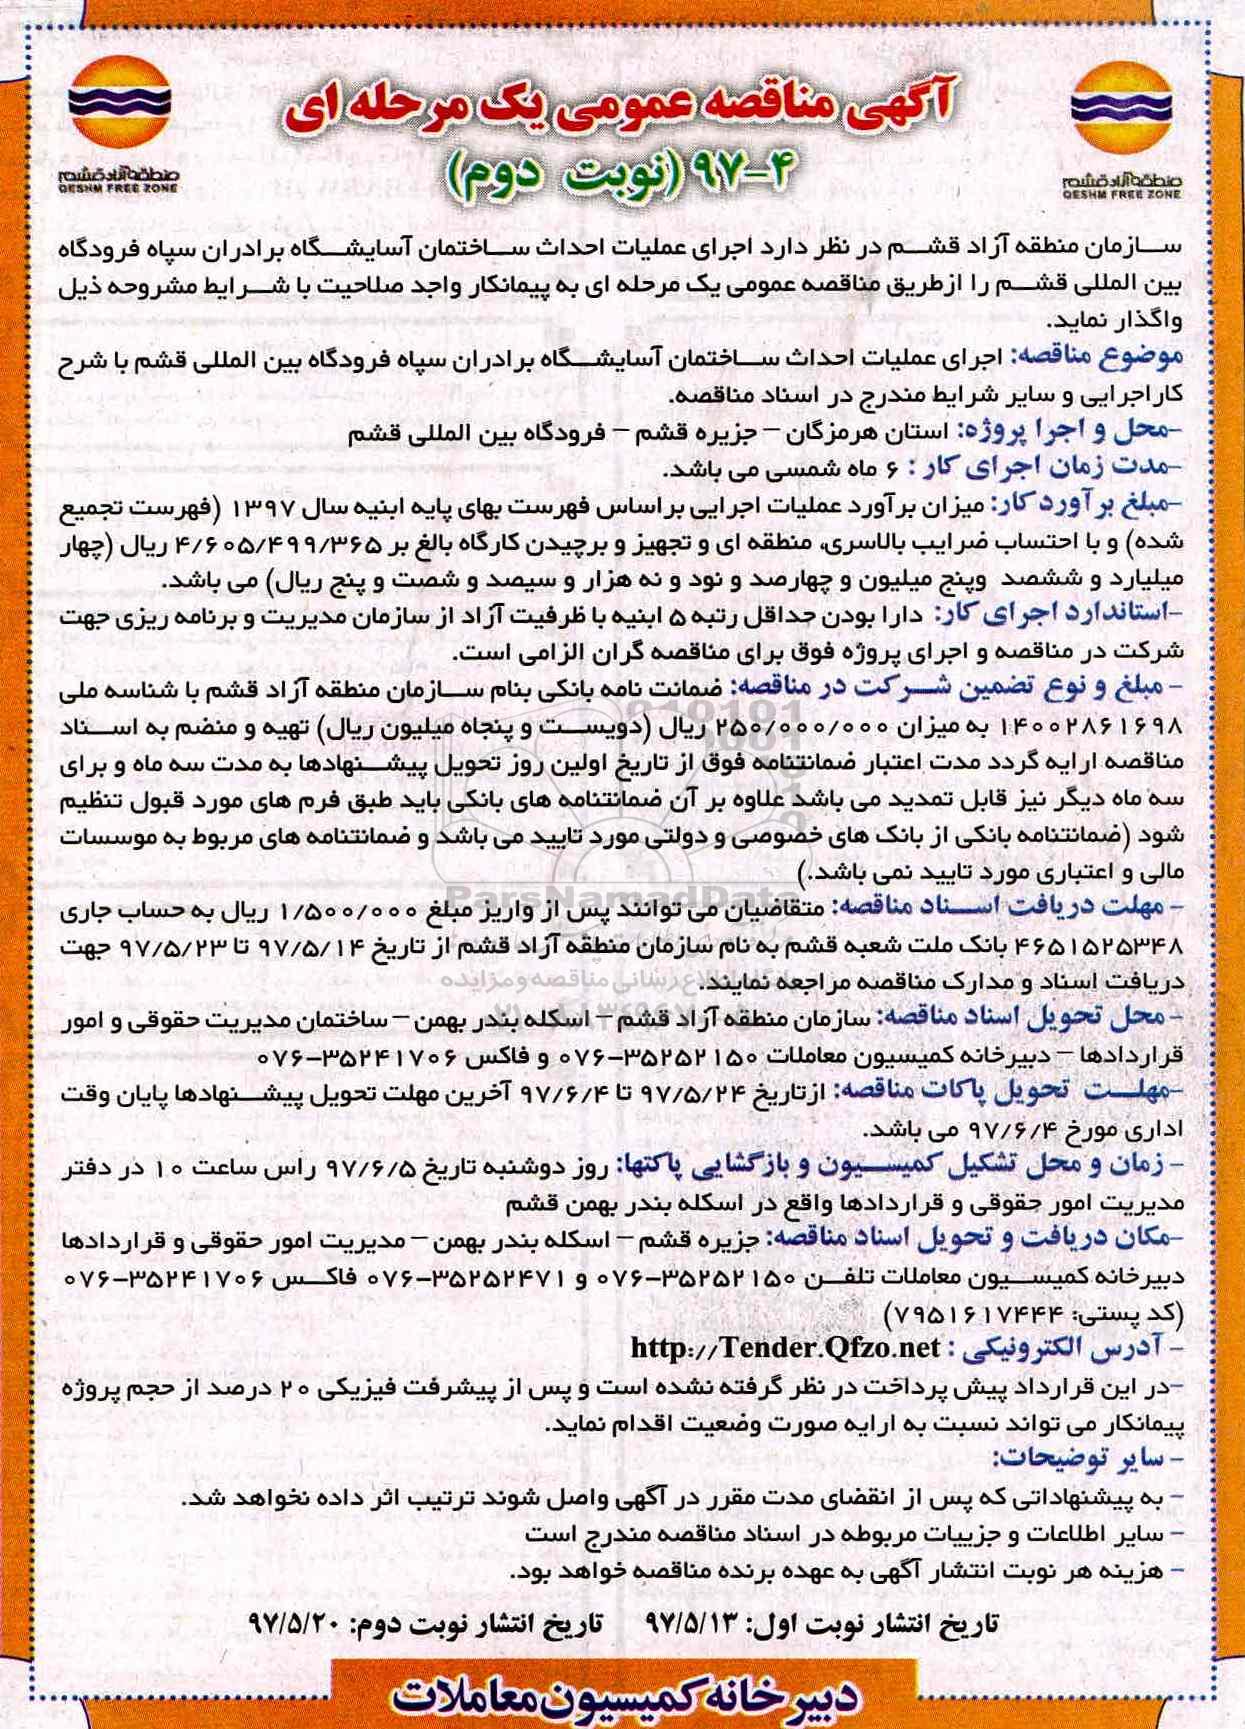 آگهی مناقصه عمومی یک مرحله ای
۹۷-۴ (نوبت دوم)
منطقه آزاد قشم
QESHM FREE ZONE
منطقه آزاد قشم
QESHM FREE ZONE
سازمان منطقه آزاد قشم در نظر دارد اجرای عملیات احداث ساختمان آسایشگاه برادران سپاه فرودگاه
بین المللی قشم را ازطریق مناقصه عمومی یک مرحله ای به پیمانکار واجد صلاحیت با شرایط مشروحه ذیل
واگذار نماید.
موضوع مناقصه: اجرای عملیات احداث ساختمان آسایشگاه برادران سپاه فرودگاه بین المللی قشم با شرح
کاراجرایی و سایر شرایط مندرج در اسناد مناقصه.
-محل و اجرا پروژه: استان هرمزگان – جزیره قشم – فرودگاه بین المللی قشم
-مدت زمان اجرای کار : ۶ ماه شمسی می باشد.
-مبلغ برآورد کار: میزان برآورد عملیات اجرایی براساس فهرست بهای پایه ابنیه سال ۱۳۹۷ (فهرست تجمیع
شده) و با احتساب ضرایب بالاسری، منطقه ای و تجهیز و برچیدن کارگاه بالغ بر ۴/۶۰۵/۴۹۹/۳۶۵ ریال (چهار
میلیارد و ششصد وپنج میلیون و چهارصد و نود و نه هزار و سیصد و شصت و پنج ریال) می باشد.
-استاندارد اجرای کار: دارا بودن حداقل رتبه ۵ ابنیه با ظرفیت آزاد از سازمان مدیریت و برنامه ریزی جهت
شرکت در مناقصه و اجرای پروژه فوق برای مناقصه گران الزامی است.
- مبلغ و نوع تضمین شرکت در مناقصه: ضمانت نامه بانکی بنام سازمان منطقه آزاد قشم با شناسه ملی
۱۴۰۰۲۸۶۱۶۹۸ به میزان ۲۵۰/۰۰۰/۰۰۰ ریال (دویست و پنجاه میلیون ریال) تهیه و منضم به اسناد
مناقصه ارایه گردد مدت اعتبار ضمانتنامه فوق از تاریخ اولین روز تحویل پیشنهادها به مدت سه ماه و برای
سه ماه دیگر نیز قابل تمدید می باشد علاوه بر آن ضمانتنامه های بانکی باید طبق فرم های مورد قبول تنظیم
شود (ضمانتنامه بانکی از بانک های خصوصی و دولتی مورد تایید می باشد و ضمانتنامه های مربوط به موسسات
مالی و اعتباری مورد تایید نمی باشد.)
ParsNamadData
- مهلت دریافت اسناد مناقصه: متقاضیان می توانند پس از واریز مبلغ ۱/۵۰۰/۰۰۰ ریال به حساب جاری
۴۶۵۱۵۲۵۳۴۸ بانک ملت شعبه قشم به نام سازمان منطقه آزاد قشم از تاریخ ۹۷/۵/۱۴ تا ۹۷/۵/۲۳ جهت
دریافت اسناد و مدارک مناقصه مراجعه نمایند.
- محل تحویل اسناد مناقصه: سازمان منطقه آزاد قشم – اسکله بندر بهمن – ساختمان مدیریت حقوقی و امور
قراردادها – دبیرخانه کمیسیون معاملات ۳۵۲۵۲۱۵۰-۰۷۶ و فاکس ۳۵۲۴۱۷۰۶-۰۷۶
-مهلت تحویل پاکات مناقصه: ازتاریخ ۹۷/۵/۲۴ تا ۹۷/۶/۴ آخرین مهلت تحویل پیشنهادها پایان وقت
اداری مورخ ۹۷/۶/۴ می باشد.
- زمان و محل تشکیل کمیسیون و بازگشایی پاکتها: روز دوشنبه تاریخ ۹۷/۶/۵ راس ساعت ۱۰ در دفتر
مدیریت امور حقوقی و قراردادها واقع در اسکله بندر بهمن قشم
-مکان دریافت و تحویل اسناد مناقصه: جزیره قشم – اسکله بندر بهمن – مدیریت امور حقوقی و قراردادها
دبیرخانه کمیسیون معاملات تلفن ۳۵۲۵۲۱۵۰-۰۷۶ و ۳۵۲۵۲۴۷۱-۰۷۶ فاکس ۳۵۲۴۱۷۰۶-۰۷۶
(کد پستی: ۷۹۵۱۶۱۷۴۴۴)
- آدرس الکترونیکی : http://Tender.Qfzo.net
-در این قرارداد پیش پرداخت در نظر گرفته نشده است و پس از پیشرفت فیزیکی ۲۰ درصد از حجم پروژه
پیمانکار می تواند نسبت به ارایه صورت وضعیت اقدام نماید.
- سایر توضیحات:
- به پیشنهاداتی که پس از انقضای مدت مقرر در آگهی واصل شوند ترتیب اثر داده نخواهد شد.
- سایر اطلاعات و جزییات مربوطه در اسناد مناقصه مندرج است
- هزینه هر نوبت انتشار آگهی به عهده برنده مناقصه خواهد بود.
تاریخ انتشار نوبت اول: ۹۷/۵/۱۳ تاریخ انتشار نوبت دوم: ۹۷/۵/۲۰
دبیرخانه کمیسیون معاملات